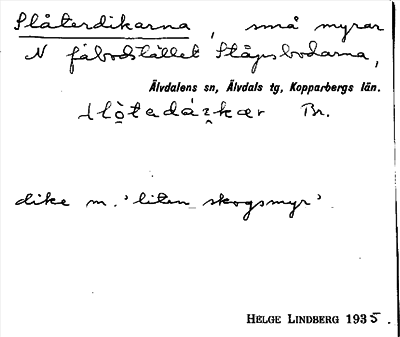 Slåterdikarna, små myrar
N fäbodstället Stågusbodarna,
Älvdalens sn, Älvdals tg, Kopparbergs län.
Br.
dike m. 'liten skogsmyr'
HELGE LINDBERG 1935.